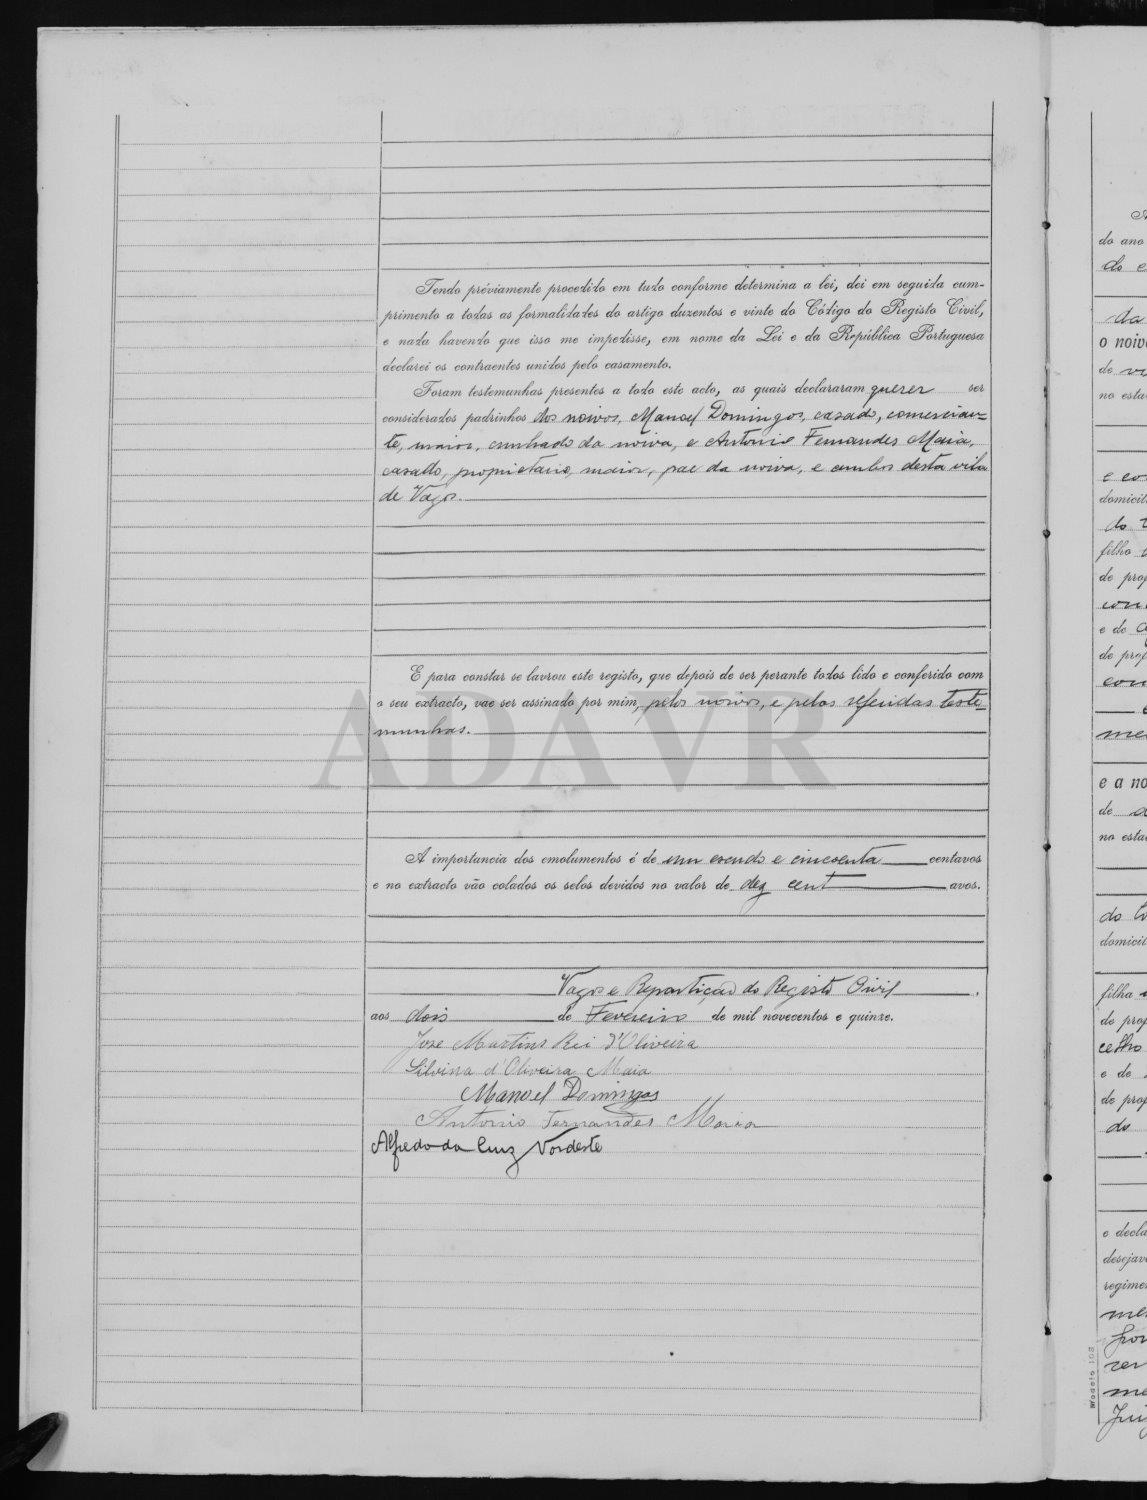 Tendo préviamente procedido em tudo conforme determina a lei, dei em seguida cum-
primento a todas as formalidades do artigo duzentos e vinte do Código do Registo Civil,
e nada havendo que isso me impedisse, em nome da Lei e da República Portuguesa
declarei os contraentes unidos pelo casamento.
Foram testemunhas presentes a todo este acto, as quais declararam querer ser
considerados padrinhos dos noivos, Manoel Domingos, casado, comercian-
te, maior, cunhado da noiva, e Antonio Fernandes Maia,
casado, proprietario, maior, pae da noiva, e ambos desta vila
de Vagos.
E para constar se lavrou este registo, que depois de ser perante todos lido e conferido com
o seu extracto, vae ser assinado por mim, pelos noivos, e pelas referidas teste-
munhas.
ADAVR
A importancia dos emolumentos é de um escudo e cincoenta centavos
e no extracto vão colados os selos devidos no valor de dez cent avos.
Vagos e Repartição do Registo Civil
aos dois de Fevereiro de mil novecentos e quinze.
Jose Martins Rei d'Oliveira
Silvina d'Oliveira Maia
Manoel Domingos
Antonio Fernandes Maria
Alfredo da Cruz Nordeste
do ano
da
o noivo
de
no esta
domicil
filho
de prop
e de
de prop
e a no
de
no esta
do
domicil
filha
de prop
celho
e de
de prop
do
e decla
desejav
regime
Modelo 103